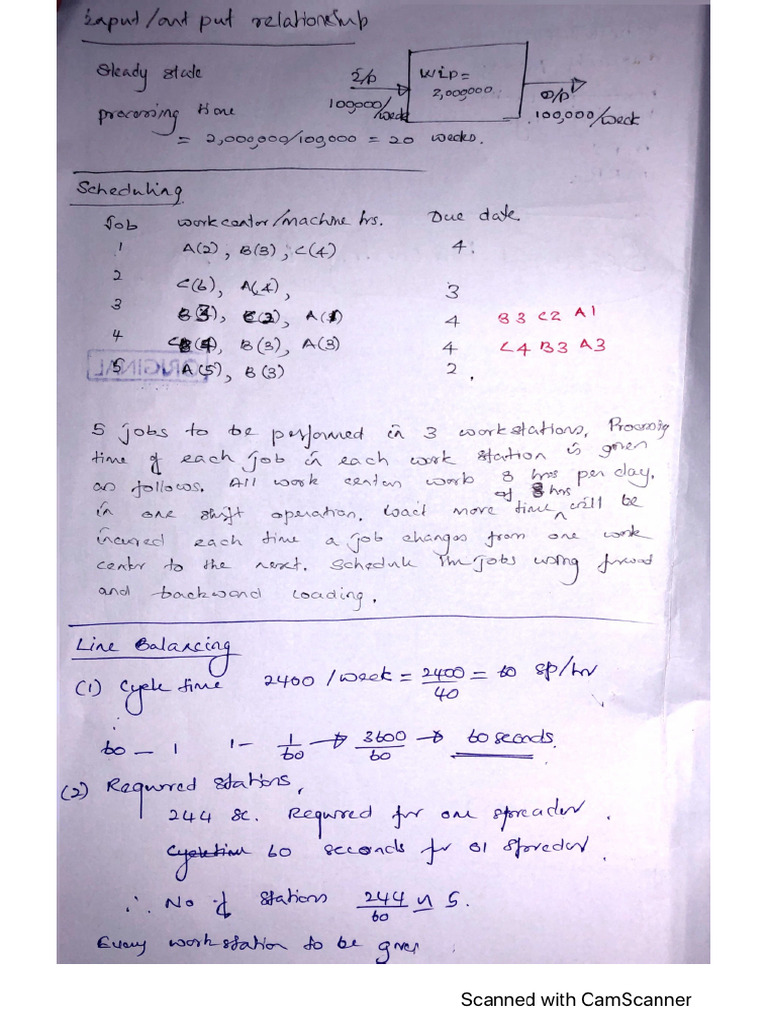 Input/out put relationship
Steady state
I/p
WIP=
2,000000
O/P
processing time
100,000/week
100,000/week
= 2,000,000/100,000 = 20 weeks.
Scheduling
Job workcenter/machine hrs. Due date.
1 A(2), B(3), C(4) 4.
2 C(6), A(4), 3
3 B(3), C(2), A(1) 4 B3 C2 A1
4 C(4), B(3), A(3) 4 C4 B3 A3
5 A(5), B(3) 2.
ORIGINAL
5 jobs to be performed in 3 workstations, Processig
time of each job in each work station is given
as follows. All work centers work 8 hrs per day.
in one shift operation, wait move time of 8 hrs will be
incured each time a job changes from one work
center to the next. Schedule the jobs using forward
and backward loading.
Line Balancing
(1) Cycle time 2400 /week = 2400/40 = 60 sp/hr
60 — 1 1 — 1/60 → 3600/60 → 60 seconds.
(2) Required stations,
244 sc. Required for one spreader.
Cycle time 60 seconds for 01 spreader.
∴ No of stations 244/60 ≃ 5.
Every workstation to be given
Scanned with CamScanner